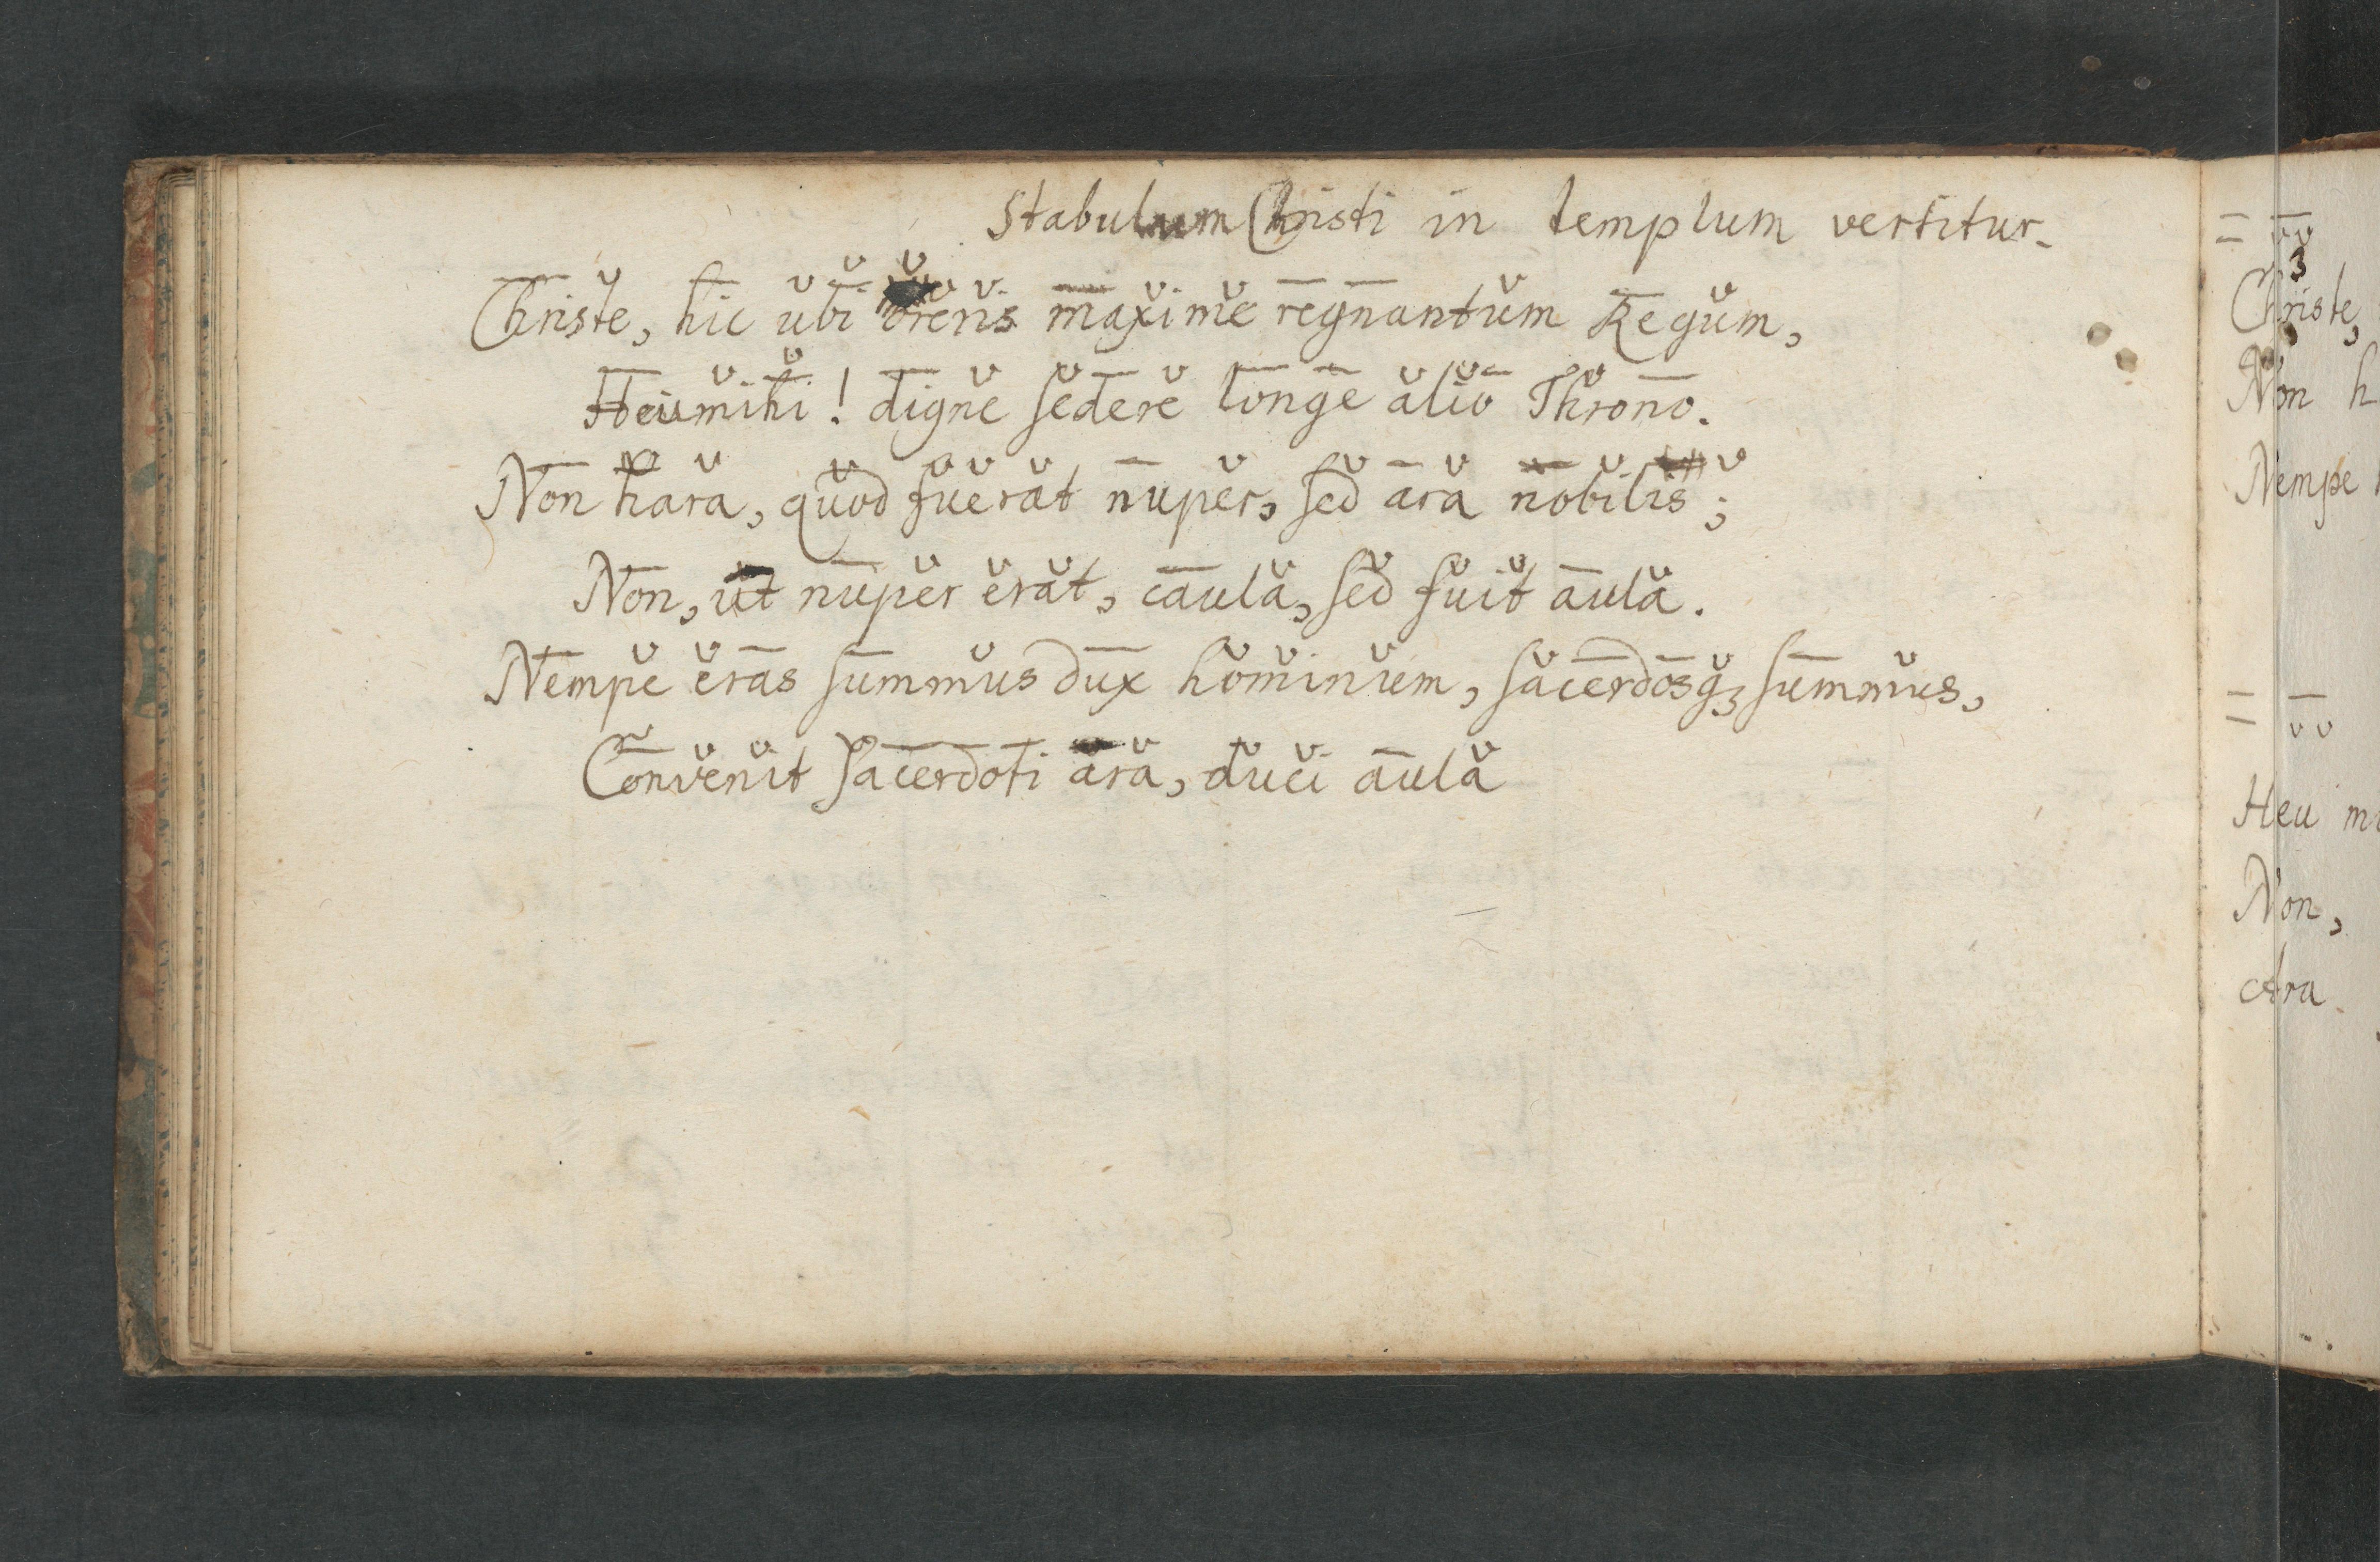 Stabulum Christi in templum vertitur.
Christe, hic ubi oreris maxime regnantum Regum,
Heu mihi! digne sedere longe alio Throno.
Non hara, quod fuerat nuper, sed ara nobilis;
Non, ut nuper erat, caula, sed fuit aula.
Nempe eras summus dux hominum, sacerdosqȝ summus,
Convenit Sacerdoti ara, duci aula
3
Christe,
Non h
Nempe
Heu mi
Non,
Ara